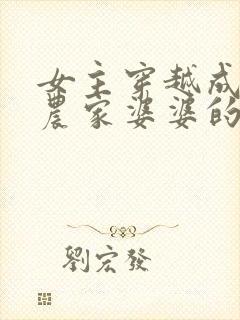 女主穿越成
農家婆婆的
劉宏發